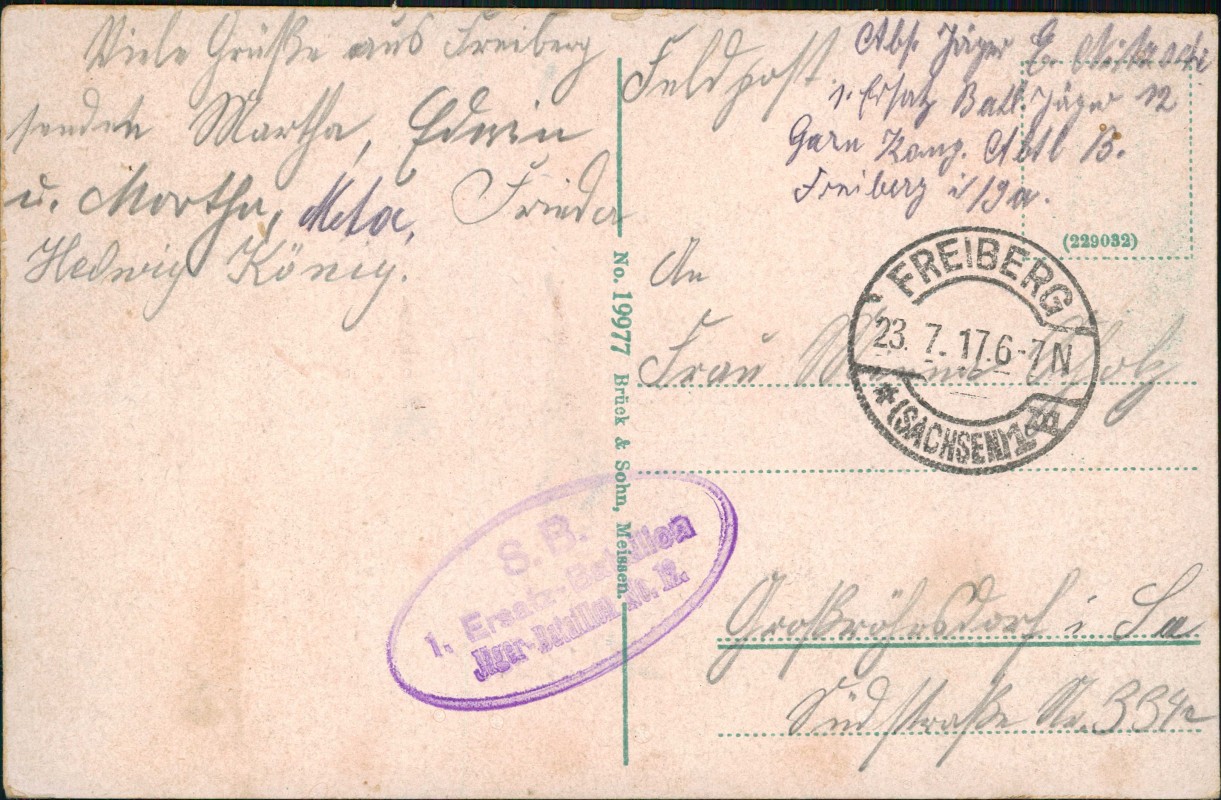 Viele Grüße aus Freiberg
senden Martha, Edwin
u. Martha, Meta, Frieda
Hedwig König.
Feldpost
Abs. Jäger E.
1. Ersatz Batl. Jäger 12
Garn Komp. Abtl B.
Freiberg i/Sa.
(229032)
An
Frau
FREIBERG
23. 7. 17. 6-7 N
* (SACHSEN)
No. 19977 Brück & Sohn, Meissen.
S. B.
1. Ersatz-Bataillon
Jäger-Bataillon No. 12.
Großröhrsdorf i. Sa
Südstraße Nr.